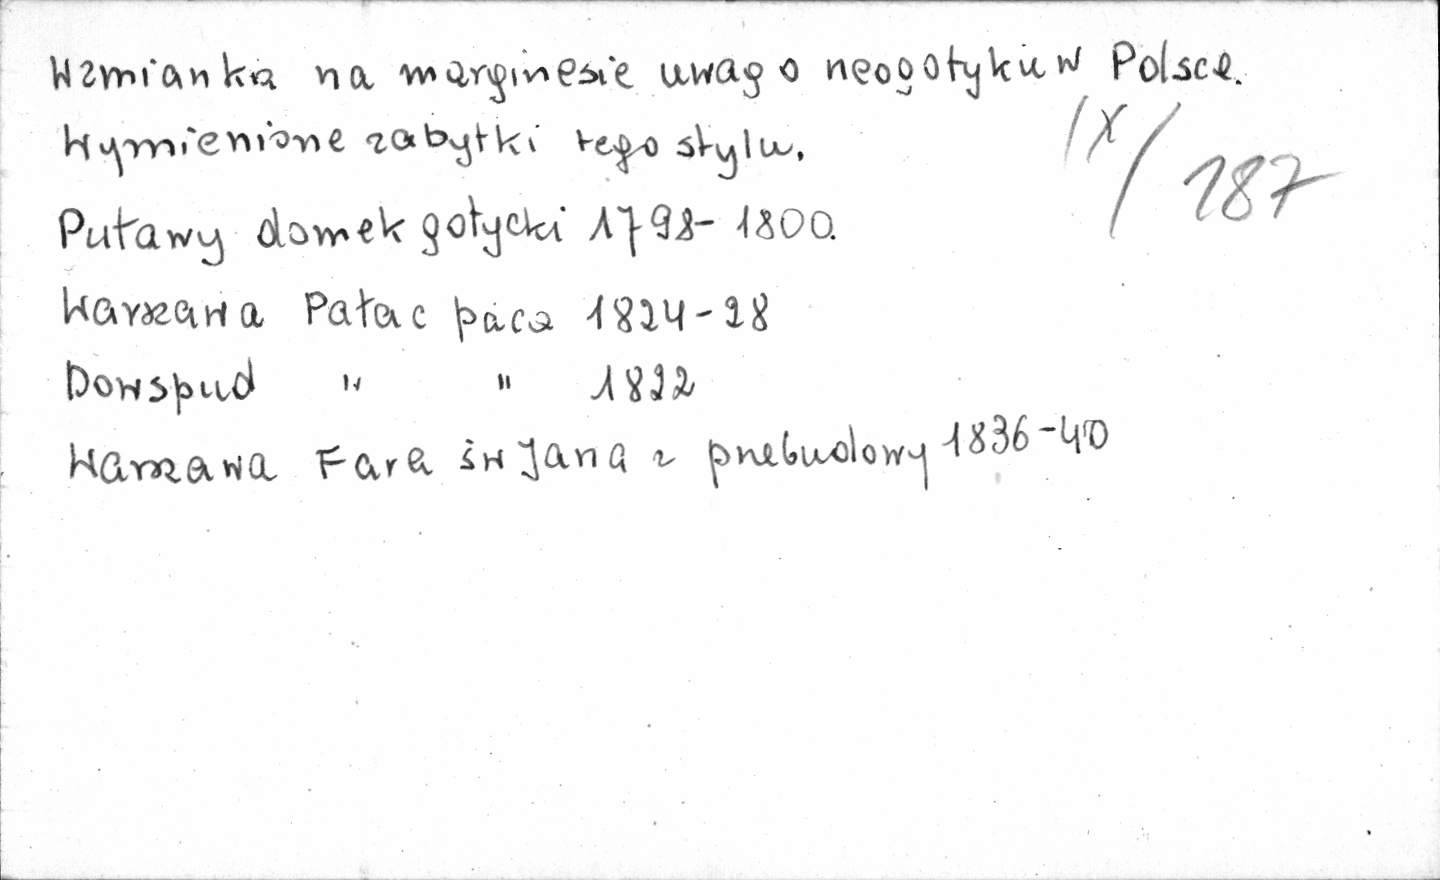 Wzmianka na marginesie uwag o neogotyku w Polsce.
Wymienione zabytki tego stylu.
IX/187
Puławy domek gotycki 1798-1800.
Warszawa Pałac paca 1824-28
Dowspud " " 1822
Warszawa Fara św Jana z przebudowy 1836-40